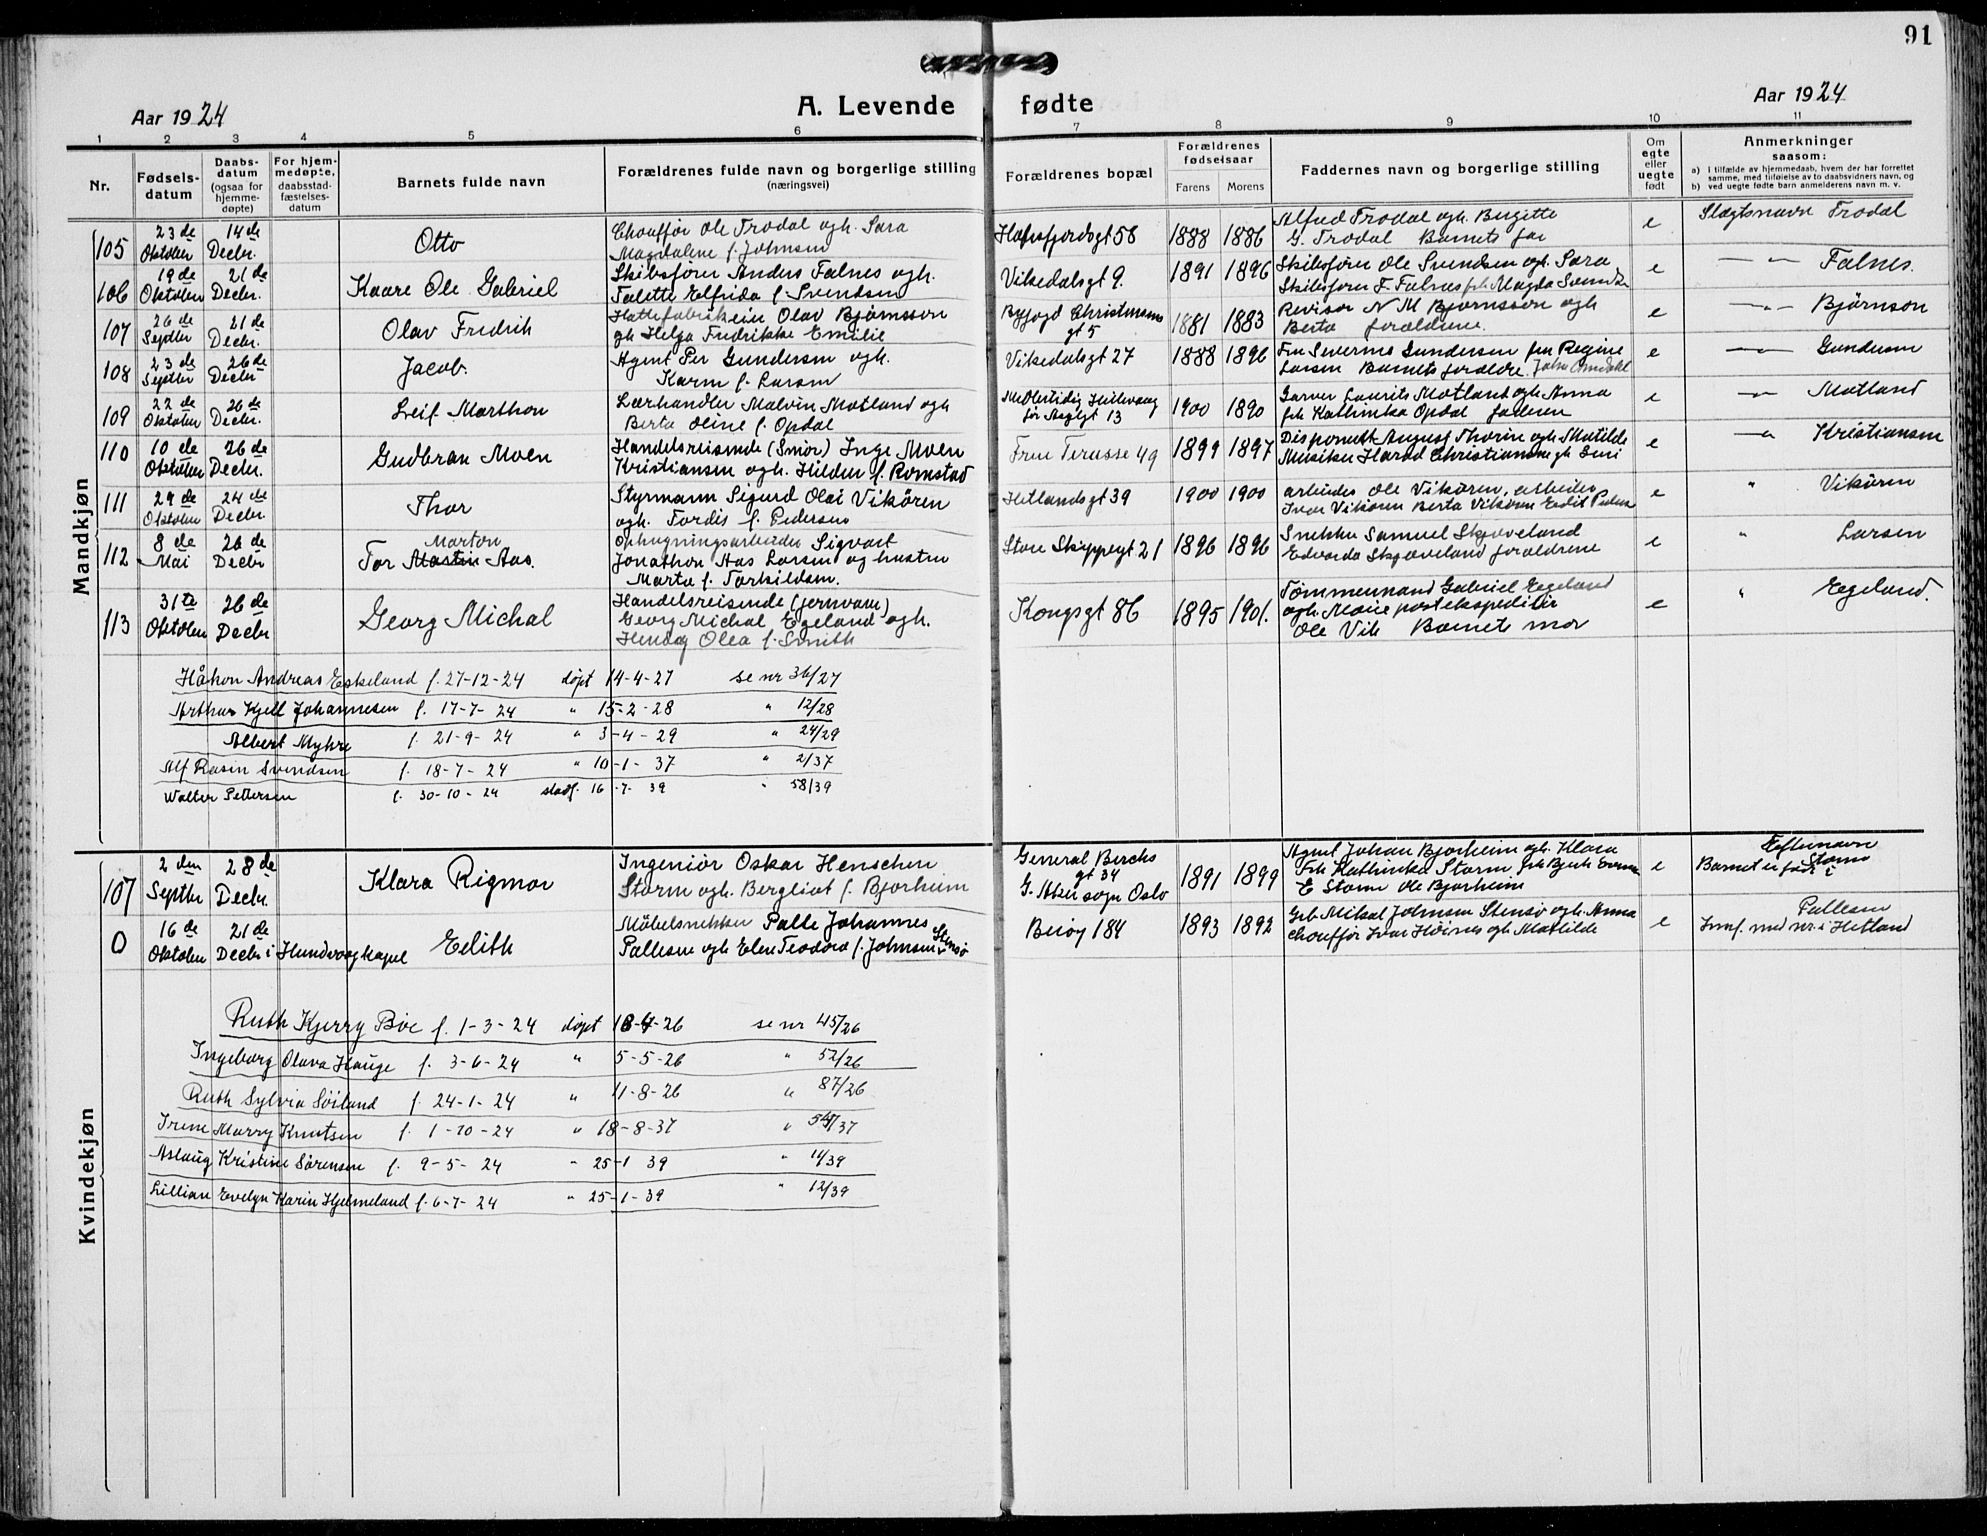 91
Aar 1924
A. Levende fødte
Aar 1924
1 2 3 4 5 6 7 8 9 10 11
Nr.
Fødsels-
datum
Daabs-
datum
(ogsaa for
hjemme-
døpte)
For hjem-
medøpte,
daabsstad-
fæstelses-
datum
Barnets fulde navn
Forældrenes fulde navn og borgerlige stilling
(næringsvei)
Forældrenes bopæl
Forældrenes
fødselsaar
Farens Morens
Faddernes navn og borgerlige stilling
Om
egte
eller
uegte
født
Anmerkninger
saasom:
a) i tilfælde av hjemmedaab, hvem der har forrettet
samme, med tilføielse av to daabsvidners navn, og
b) ved uegte fødte barn anmelderens navn m. v.
Mandkjøn
105
23de
Oktober
14de
Decbr.
Otto
Chouffør Ole Trodal og h. Sara
Magdalene f. Johnsen
Hafrsfjordsgt 58
1888 1886
Alfred Trodal og h. Birgitte
G. Trodal Barnets far
e
Slægtsnavn Trodal
106
19de
Oktober
21de
Decbr.
Kaare Ole Gabriel
Skibsfører Anders Falnes og h.
Talette Elfrida f. Svendsen
Vikedalsgt 9.
1891 1896
Skibsfører Ole Svendsen og h. Sara
Skibsfører F. Falnes frk Magda
e
— " — Falnes.
107
26de
Septbr
21de
Decbr.
Olav Fredrik
Hattefabrikein Olav Bjørnsson
og h Helga Fredrikke Emilie
Byfogd Christensens
gt 5
1881 1883
Revisor N M Bjørnsson og h
Berta forældrene.
e
— " — Bjørnson
108
23de
Septbr
26de
Decbr
Jacob.
Agent Per Gundersen og h.
Karen f. Larsen
Vikedalsgt 27
1888 1896
Fru Severine Gundersen fru Regine
Larsen Barnets forældre. John Omdahl
e
— " — Gundersen
109
22de
Oktober
26de
Decbr.
Leif Marthon
Lærhandler Malvin Motland og h
Berta Oline f. Opdal
Midlertidig Hillevaag
før 13
1900 1890
Garver Laurits Motland og h Anna
frk Kathinka Opdal faderen
e
— " — Motland
110
10de
Oktober
26de
Decbr.
Gudbran Moen
Handelsreisende (Smør) Inge Moen
Kristiansen og h. Hildur f. Romstad
Frue Terasse 49
1899 1897
Disponent August Thorin og h Matilde
Musiker Harald Christiansen og h
e
— " — Kristiansen
111
29de
Oktober
24de
Decbr
Thor
Styrmann Sigurd Olai Vikøren
og h. Tordis f. Pedersen
Hetlandsgt 39
1900 1900
arbeider Ole Vikøren, arbeider
Ivar Vikøren Berta Vikøren Edit
e
" Vikøren
112
8de
Mai
26de
Decbr
Marton
Tor Martin Aas.
Ophugningsarbeider Sigvart
Jonathon Aas Larsen og hustru
Marta f. Torkildsen.
Store Skippergt 21
1896 1896
Snekker Samuel Skjæveland
Edvarda Skjæveland forældrene
e
" Larsen
113
31te
Oktober
26de
Decbr
Georg Michal
Handelsreisende (jernvare)
Georg Michal Egeland og h.
Henny Olea f. Smith
Kongsgt 86
1895 1901.
Tømmermand Gabriel Egeland
og h. Marie postekspeditør
Ole Vik Barnets mor
e
" Egeland.
Håkon Andreas Eskeland f. 27-12-24 døpt 14-4-27 se nr 36/27
Arthur Kjell Johannesen f. 17-7-24 " 15-2-28 " 12/28
Albert Myhre f. 21-9-24 " 3-4-29 " 24/29
Alf Rasin Svendsen f. 18-7-24 " 10-1-37 " 2/37
Walter Pettersen f. 30-10-24 stadf. 16-7-39 " 58/39
Kvindekjøn
107
2den
Septbr
28de
Decbr
Klara Rigmor
Ingeniør Oskar Henschen
Storm og h. Bergliot f. Bjorheim
General Birchs
gt 34
G. Aker sogn Oslo
1891 1899
Agent Johan Bjorheim og h. Klara
Frk Kathinka Storm frk Bjørk
E Storm Ole Bjorheim
e
Efternavn
Storm
Barnet er født i
0
16de
Oktober
21de
Decbr i Hundvaag kapel
Edith
Møbelsnekker Palle Johannes
Pallesen og h Elen Teodora f. Johnsen Stensø
Beiøy 184
1893 1892
Grb Mikal Johnsen Stensø og h. Anna
chouffør Ivar Høines og h Matilde
e
Pallesen
Innf. med nr. i Hetland
Ruth Kjerry Bøe f. 1-3-24 døpt 18-4-26 se nr 45/26
Ingeborg Olava Hauge f. 3-6-24 " 5-5-26 " 52/26
Ruth Sylvia Søiland f. 24-1-24 " 11-8-26 " 87/26
Irene Marry Knutsen f. 1-10-24 " 18-8-37 " 54/37
Aslaug Kristine Sørensen f. 9-5-24 " 25-1 39 " 11/39
Lillian Evelyn Karin Hjelmeland f. 6-7-24 " 25-1-39 " 12/39